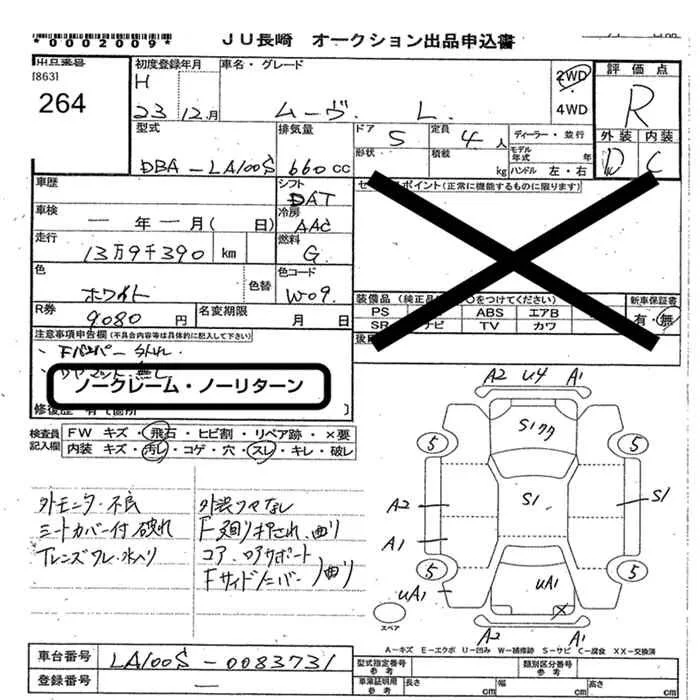 *0002009*
JU長崎 オークション出品申込書
出品番号
[863]
264
初度登録年月
H
23 12 月
車名・グレード
ムーヴ L
2WD
4WD
評価点
R
外装 内装
D C
型式
DBA-LA100S
排気量
660 CC
ドア
5
定員
4 人
形状
積載
kg
ディーラー・並行
モデル年式 年
ハンドル 左・右
車歴
シフト
DAT
車検
— 年 — 月( 日)
冷房
AAC
走行
13万9千390 km
燃料
G
色
ホワイト
色替
色コード
W09
R券
9080 円
名変期限
月 日
ポイント(正常に機能するものに限ります)
装備品(純正品 ○をつけてください)
PS ABS エアB
SR ナビ TV カワ
新車保証書
有・無
注意事項申告欄(不具合内容等は具体的に記入して下さい)
・Fバンパー
ノークレーム・ノーリターン
修復歴 有(箇所 )
検査員記入欄
FW キズ・飛石・ヒビ割・リペア跡・×要
内装 キズ・汚レ・コゲ・穴・スレ・キレ・破レ
外モニタ・不良
シートカバー付 破れ
外装
コア
Fサイドメンバー
曲り
A2 U4 A1
S1 クク
5 5
S1
A2
S1
A1
5 5
UA1
UA1
×
A2 A1
スペア
A-キズ E-エクボ U-凹み W-補修跡 S-サビ C-腐食 XX-交換済
車台番号
LA100S-0083731
登録番号
—
型式指定番号
参考
類別区分番号
参考
車庫証明用
参考
長さ cm
幅 cm
高さ cm